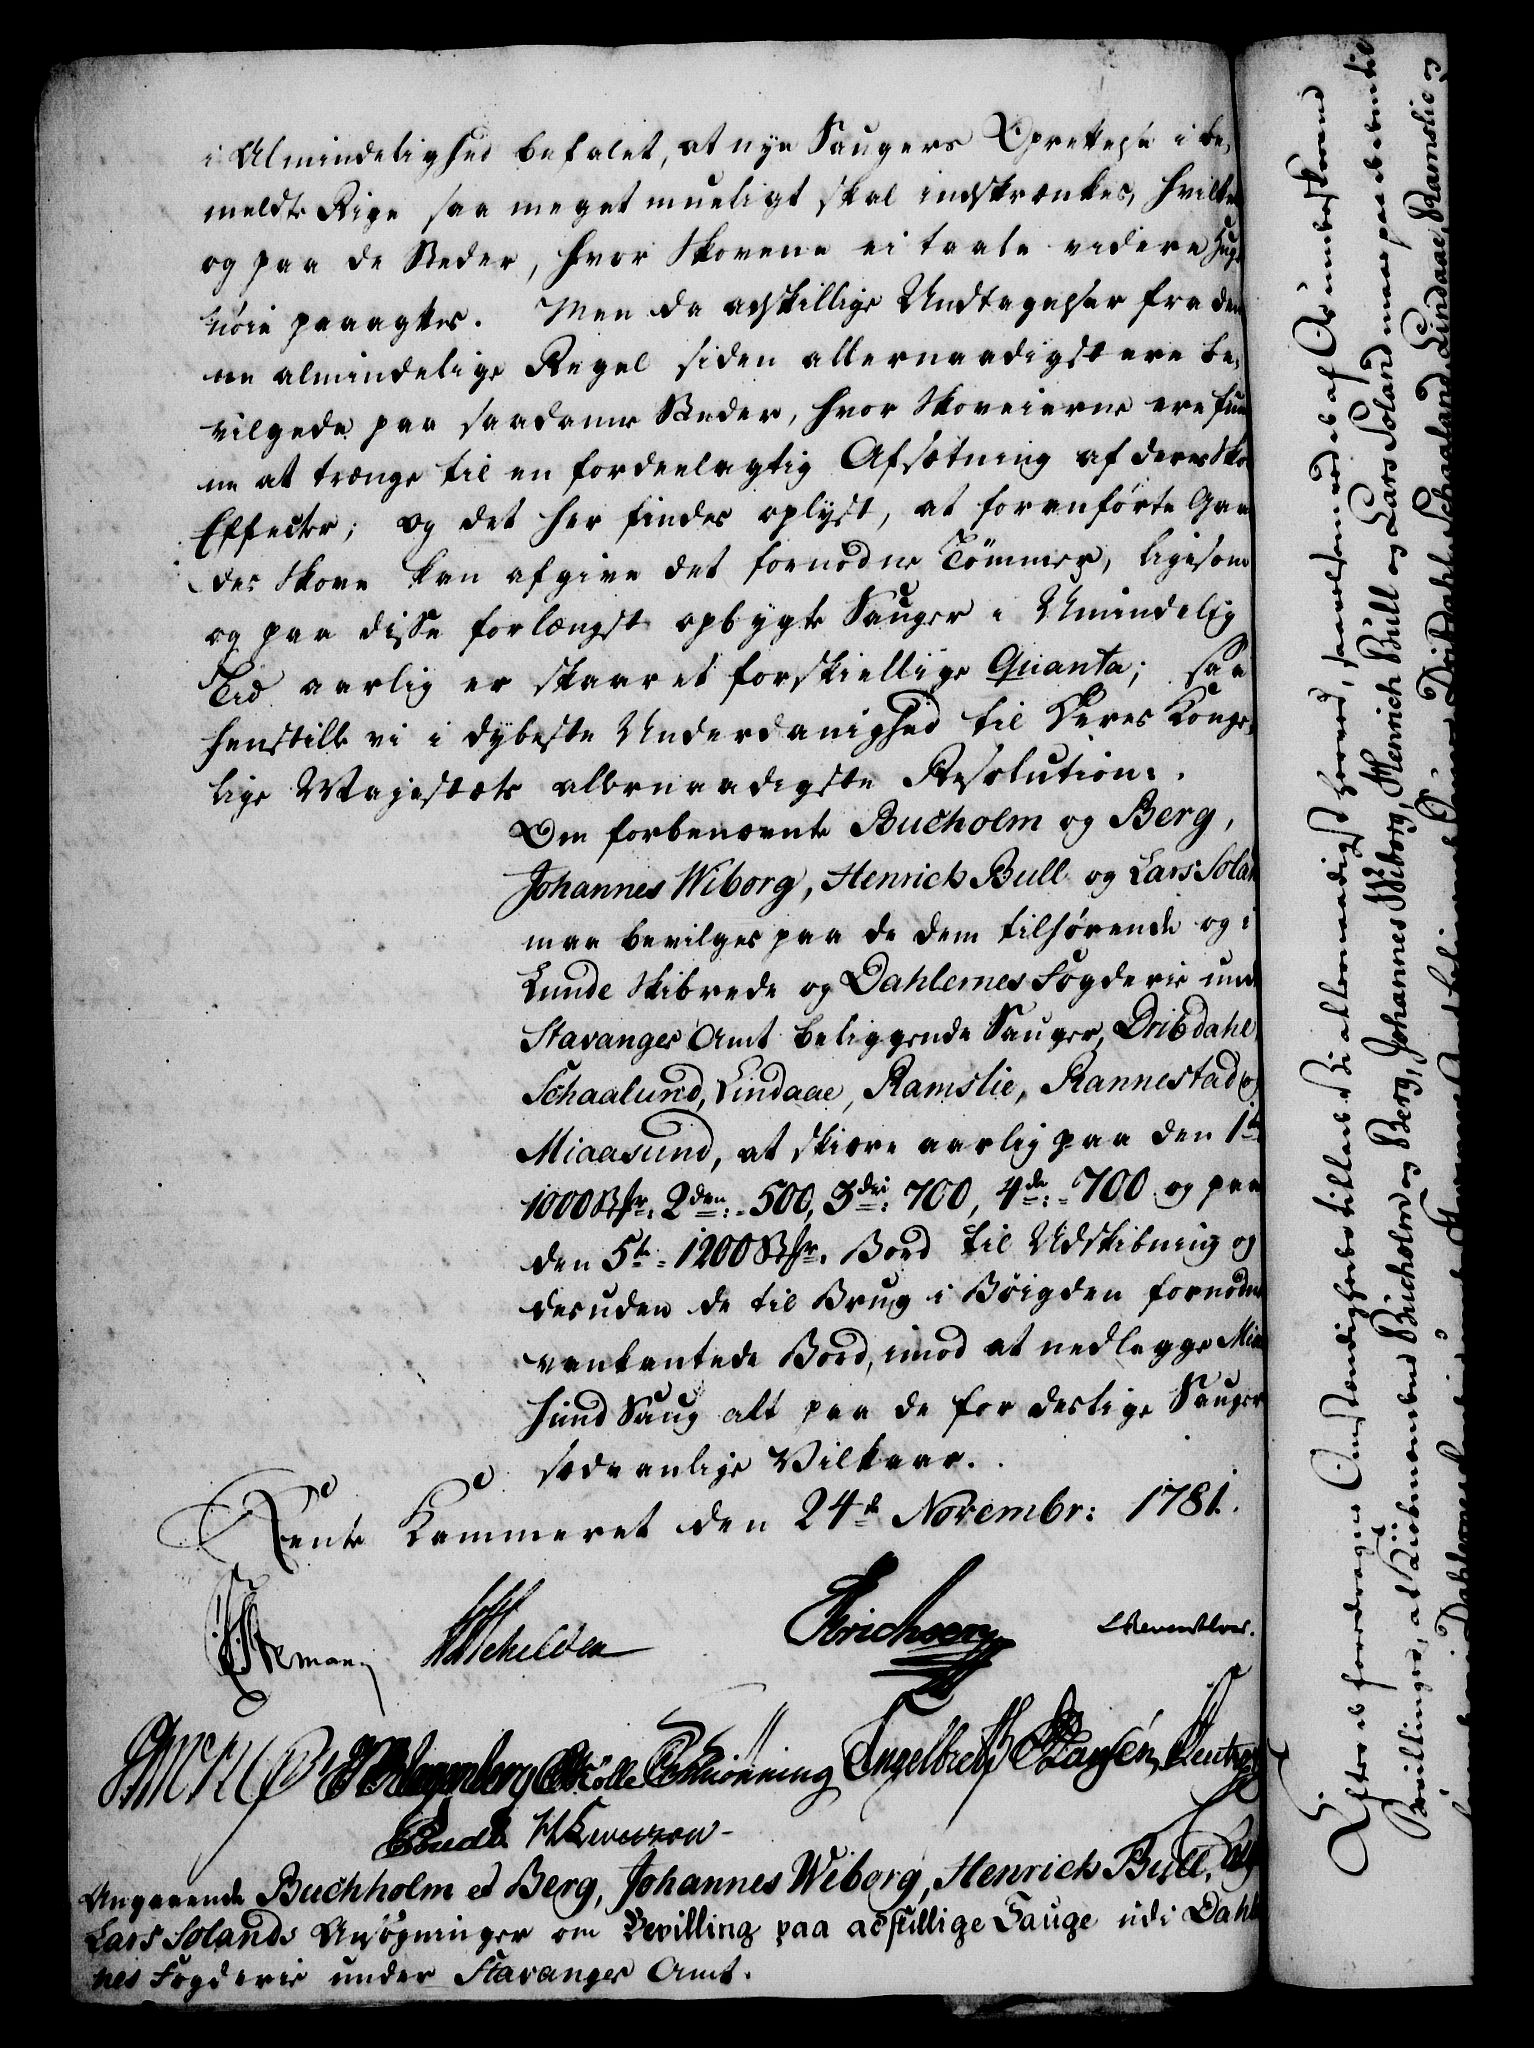 i Almindelighed befalet, at nye Saugers Oprettelse i be-
meldte Rige saa meget mueligt skal indskrænkes, hvilket
og paa de Steder, hvor Skovene ei taale videre Hugst
nøie paaagtes. Men da adskillige Undtagelser fra den
ne almindelige Regel siden allernaadigst ere be-
vilgede paa saadanne Steder, hvor Skoveierne ere fun
ne at trænge til en fordeelagtig Afsætning af deres Skov
Effecter; og det her findes oplyst, at foranførte Gaar
des Skove kan afgive det fornødne Tømmer, ligesom
og paa disse forlængst opbygte Sauger i Umindelig
Tid aarlig er skaaret forskiellige Quanta; saa
henstille vi i dybeste Underdanighed til Deres Konge-
lige Majestæts allernaadigste Resolution:
Om forbenævnte Bucholm og Berg,
Johannes Wiborg, Henrich Bull og Lars Solan
maa bevilges paa de dem tilhørende og i
Lunde Skibrede og Dahlernes Fogderie und
Stavanger Amt beliggende Sauger, Dribdahl
Schaalund, Lindaae, Ramslie, Rannestad og
Miaasund, at skiære aarlig paa den 1te
1000 Bfr: 2den: 500, 3die: 700, 4de: 700 og paa
den 5te 1200 Bfr. Bord til Udskibning og
desuden de til Brug i Bøigden fornødne
vankantede Bord, imod at nedlegge Mia
sund Saug alt paa de for deslige Sauger
sædvanlige Vilkaar.
Rente Kammeret den 24de Novembr: 1781.
Schilden Erichsen Reventlow.
Schiønning Engelbreth Hansen
H Lawson
Angaaende Buchholm et Berg, Johannes Weborg, Henrich Bull, og
Lars Solands Ansøgninger om Bevilling paa adskillige Sauge udi Dahle
nes Fogderie under Stavanger Amt.
Efter de foredragne Omstændigheder tillade Vi allernaadigst herved,
Bevillinger, at Kiøbmændene Bucholm og Berg, Johannes Wiborg, Henrich Bull og Lars Soland maae paa de dem til